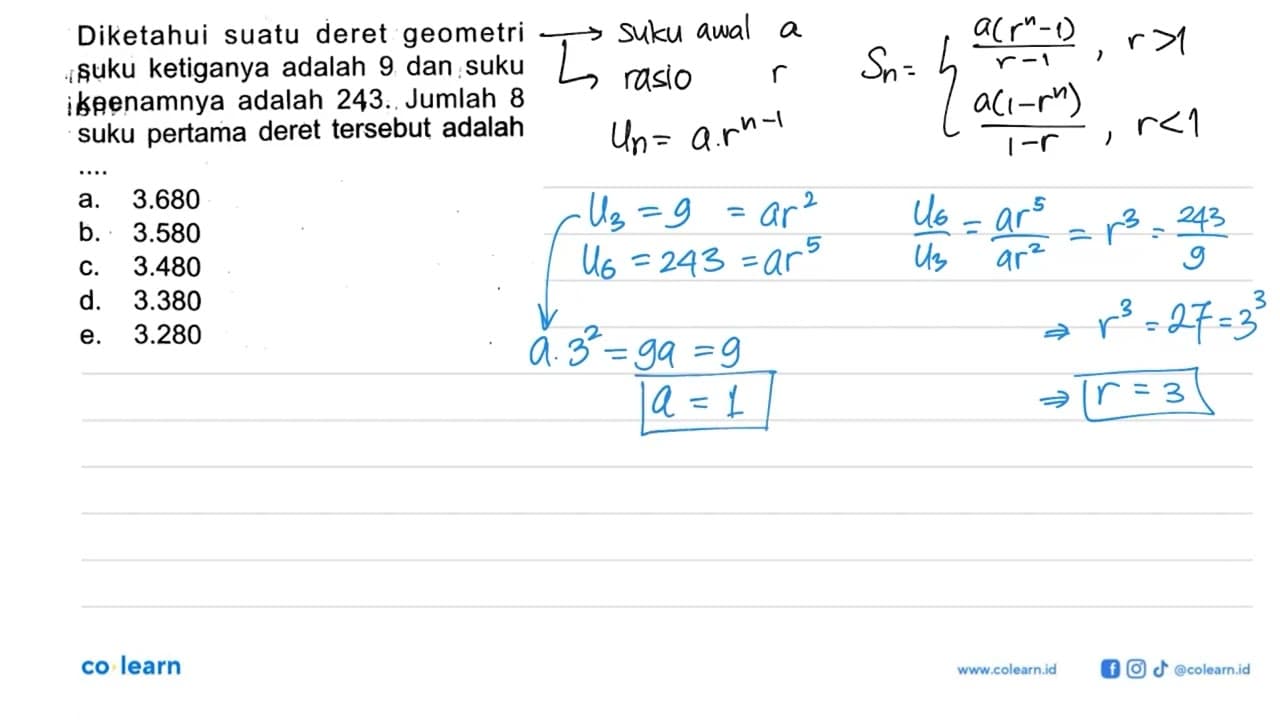 Diketahui suatu deret geometri
suku ketiganya adalah 9 dan suku
keenamnya adalah 243. Jumlah 8
suku pertama deret tersebut adalah
....
a. 3.680
b. 3.580
c. 3.480
d. 3.380
e. 3.280
→ suku awal a
↳ rasio r
Un = a.r^(n-1)
Sn = { a(r^n-1)/(r-1), r>1
a(1-r^n)/(1-r), r<1
U3 = 9 = ar^2
U6 = 243 = ar^5
a.3^2 = 9a = 9
a = 1
U6/U3 = ar^5/ar^2 = r^3 = 243/9
⇒ r^3 = 27 = 3^3
⇒ r = 3
co learn
www.colearn.id
@colearn.id